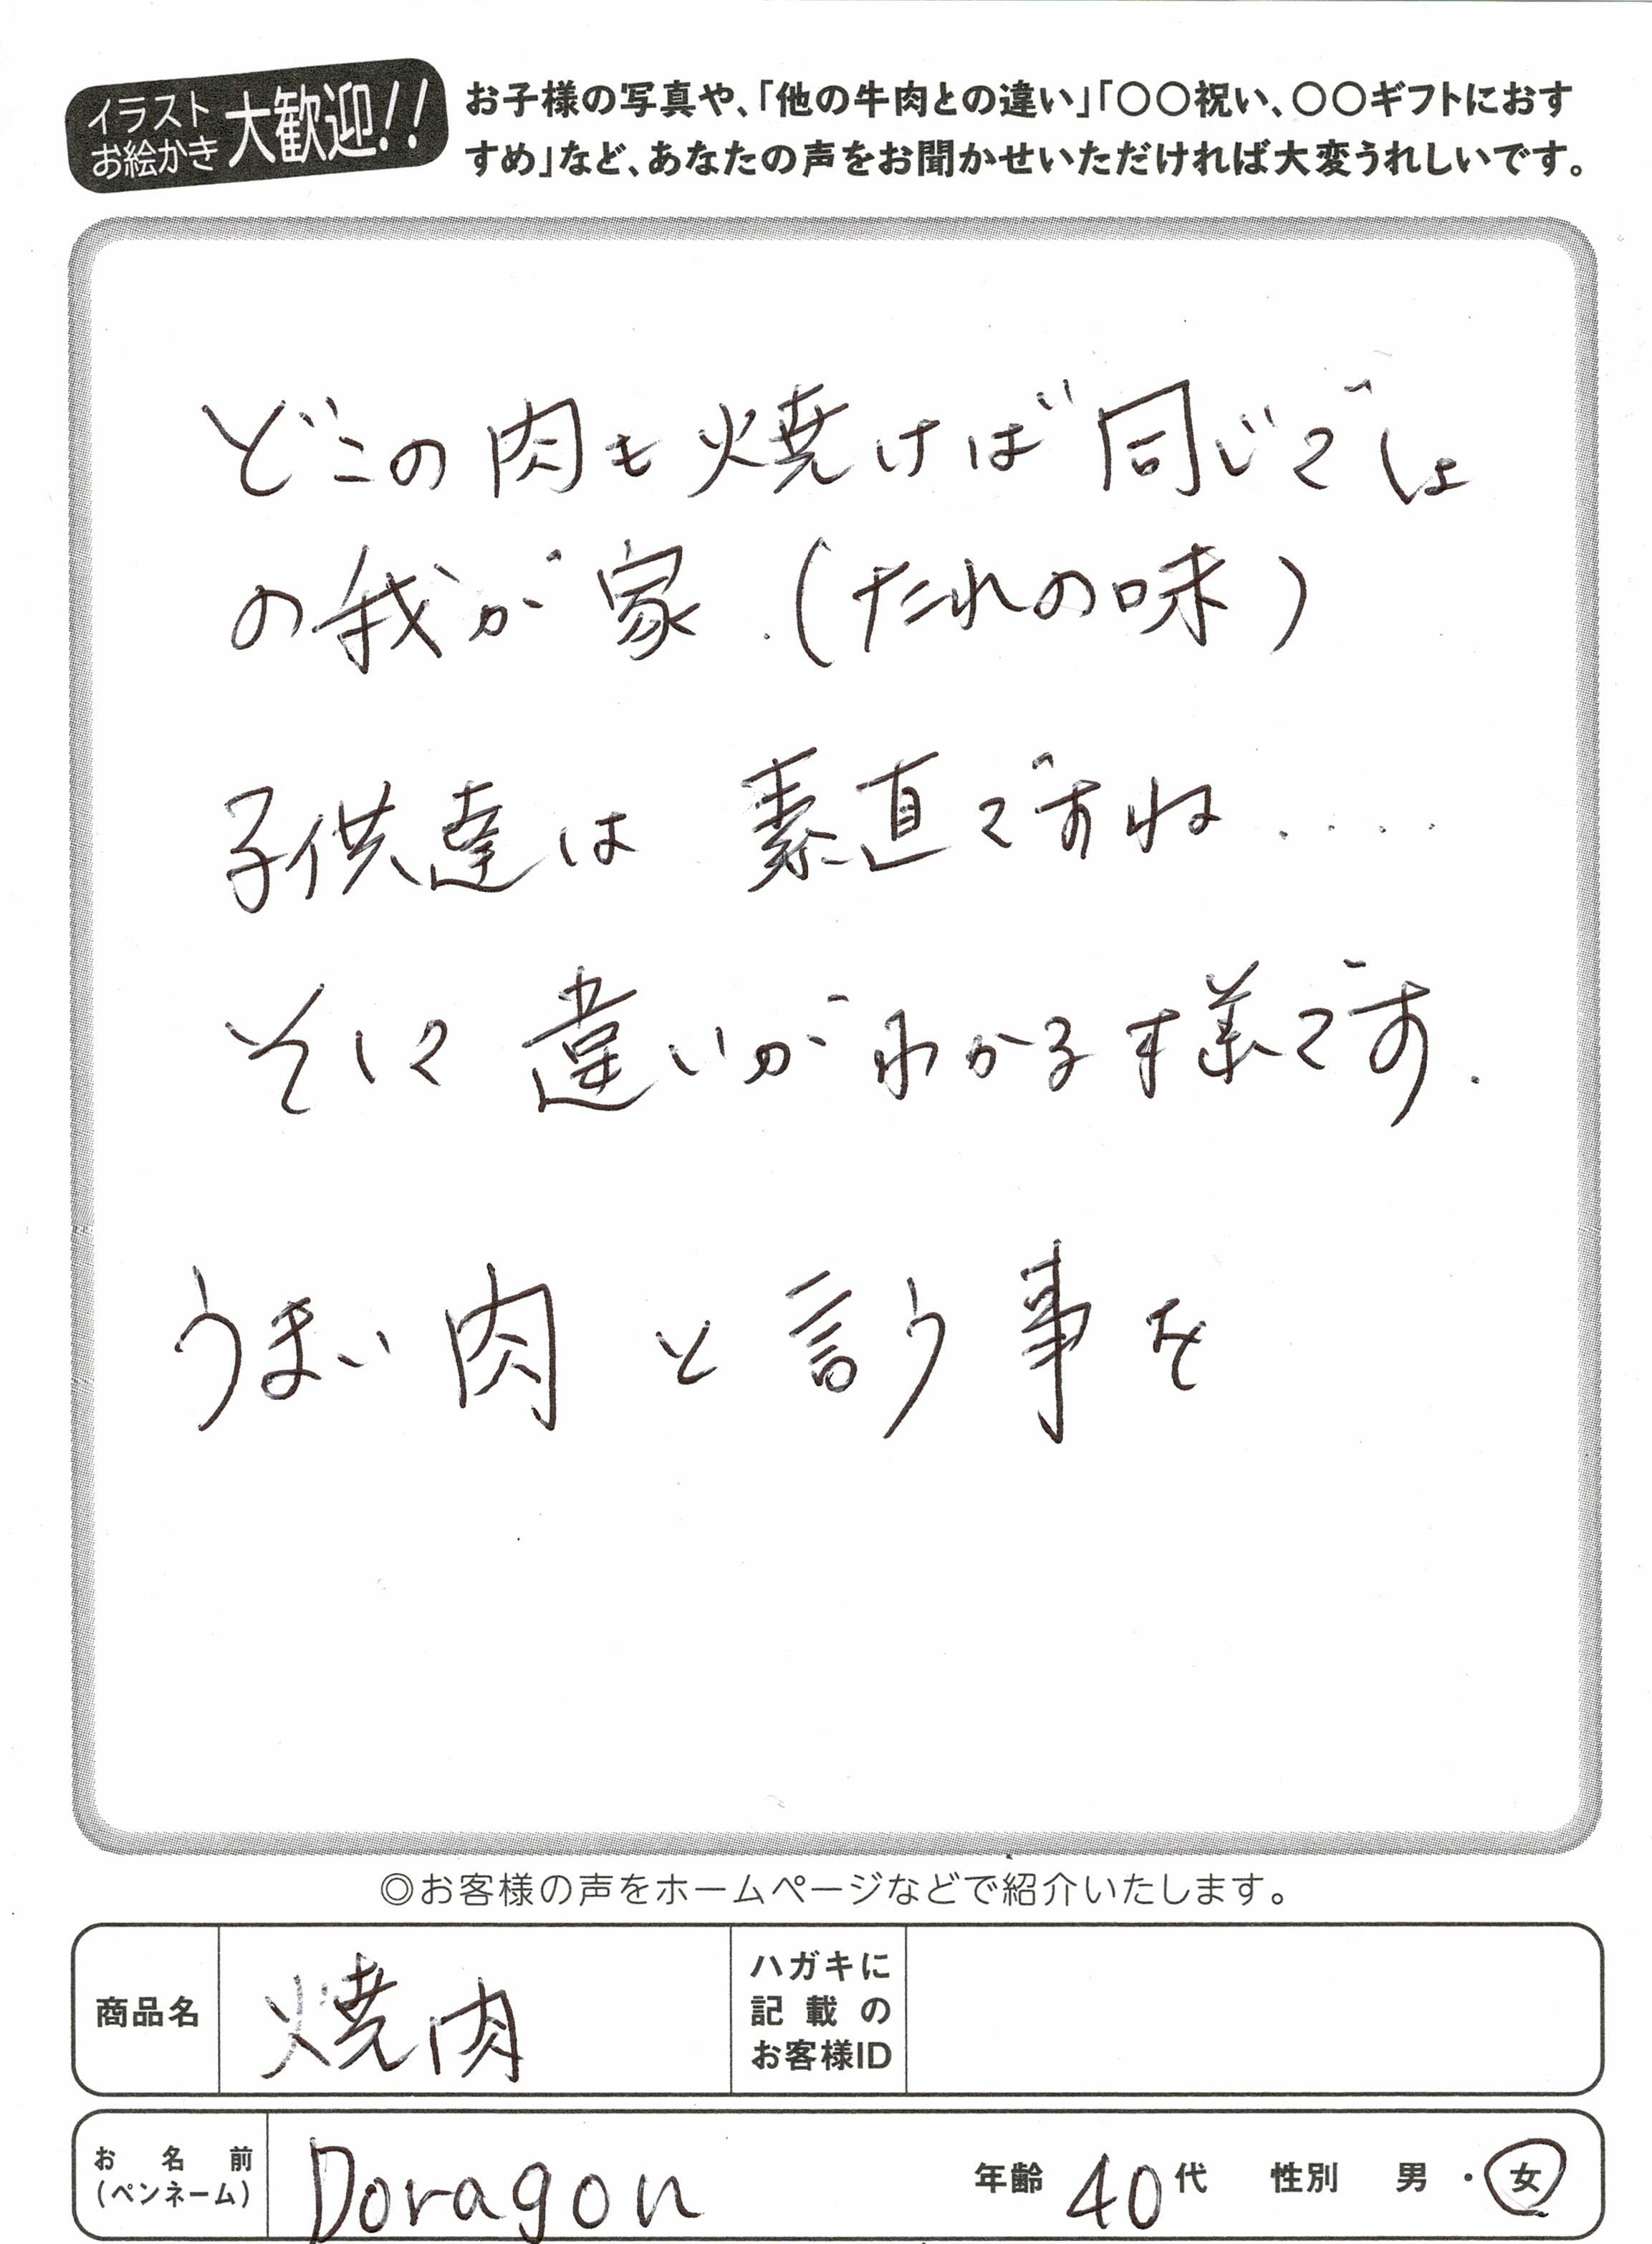 イラスト
お絵かき
大歓迎!!
お子様の写真や、「他の牛肉との違い」「〇〇祝い、〇〇ギフトにおす
すめ」など、あなたの声をお聞かせいただければ大変うれしいです。
どこの肉も焼けば同じでしょ
の我が家.(たれの味)
子供達は 素直ですね....
そして 違いがわかるす様です.
うまい肉 と 言う 事 を
◎お客様の声をホームページなどで紹介いたします。
商品名 焼肉
ハガキに
記載の
お客様ID
お名前
(ペンネーム)
Doragon 年齢 40代 性別 男・女